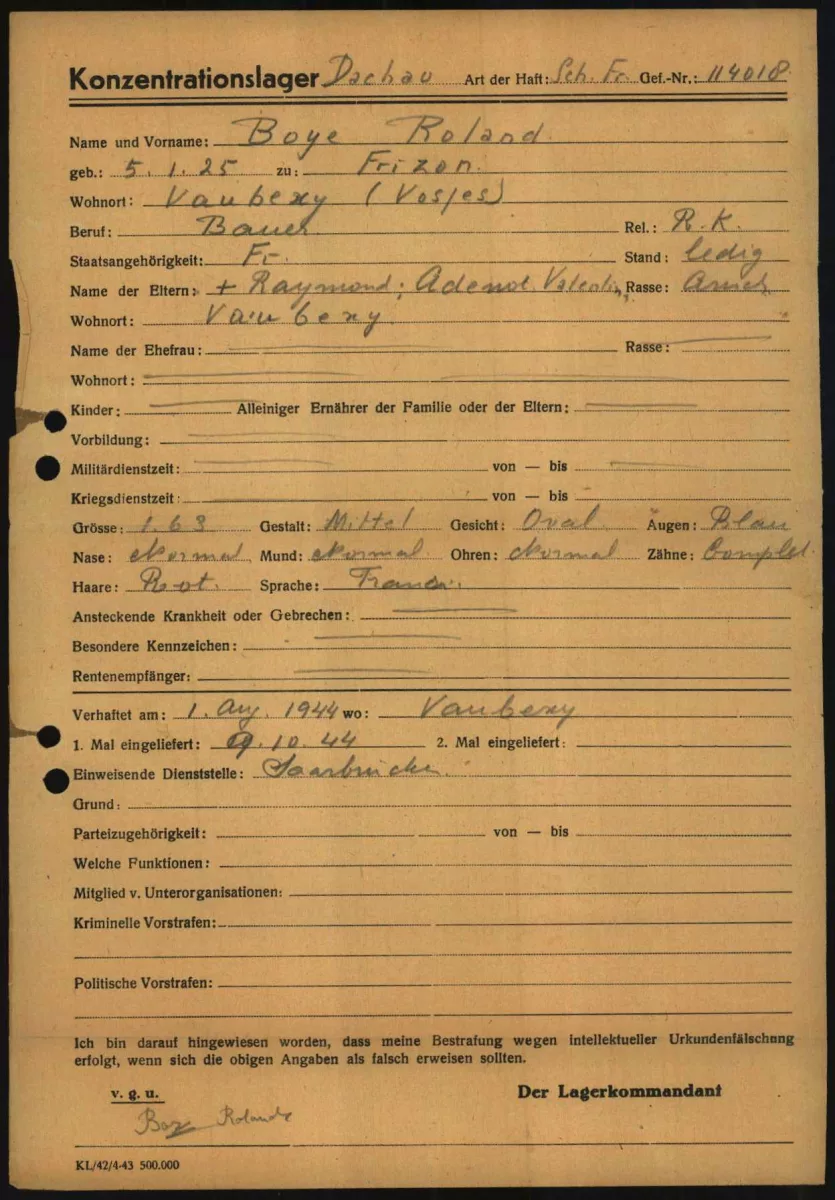 Konzentrationslager Dachau Art der Haft: Sch. Fr. Gef.-Nr.: 114018
Name und Vorname: Boye Roland
geb.: 5.1.25 zu: Frizon
Wohnort: Vaubexy (Vosjes)
Beruf: Bauer Rel.: R.K.
Staatsangehörigkeit: Fr. Stand: ledig
Name der Eltern: + Raymond; Adenot Valentin, Rasse:
Wohnort: Vaubexy
Name der Ehefrau: Rasse:
Wohnort:
Kinder: Alleiniger Ernährer der Familie oder der Eltern:
Vorbildung:
Militärdienstzeit: von — bis
Kriegsdienstzeit: von — bis
Grösse: 1.63 Gestalt: Mittel Gesicht: Oval Augen: Blau
Nase: Normal Mund: Normal Ohren: Normal Zähne: Complet
Haare: Rot. Sprache: Franz.
Ansteckende Krankheit oder Gebrechen:
Besondere Kennzeichen:
Rentenempfänger:
Verhaftet am: 1. Aug. 1944 wo: Vaubexy
1. Mal eingeliefert: 9.10.44 2. Mal eingeliefert:
Einweisende Dienststelle: Saarbrücken
Grund:
Parteizugehörigkeit: von — bis
Welche Funktionen:
Mitglied v. Unterorganisationen:
Kriminelle Vorstrafen:
Politische Vorstrafen:
Ich bin darauf hingewiesen worden, dass meine Bestrafung wegen intellektueller Urkundenfälschung
erfolgt, wenn sich die obigen Angaben als falsch erweisen sollten.
v. g. u. Der Lagerkommandant
Boye Roland
KL/42/4-43 500.000